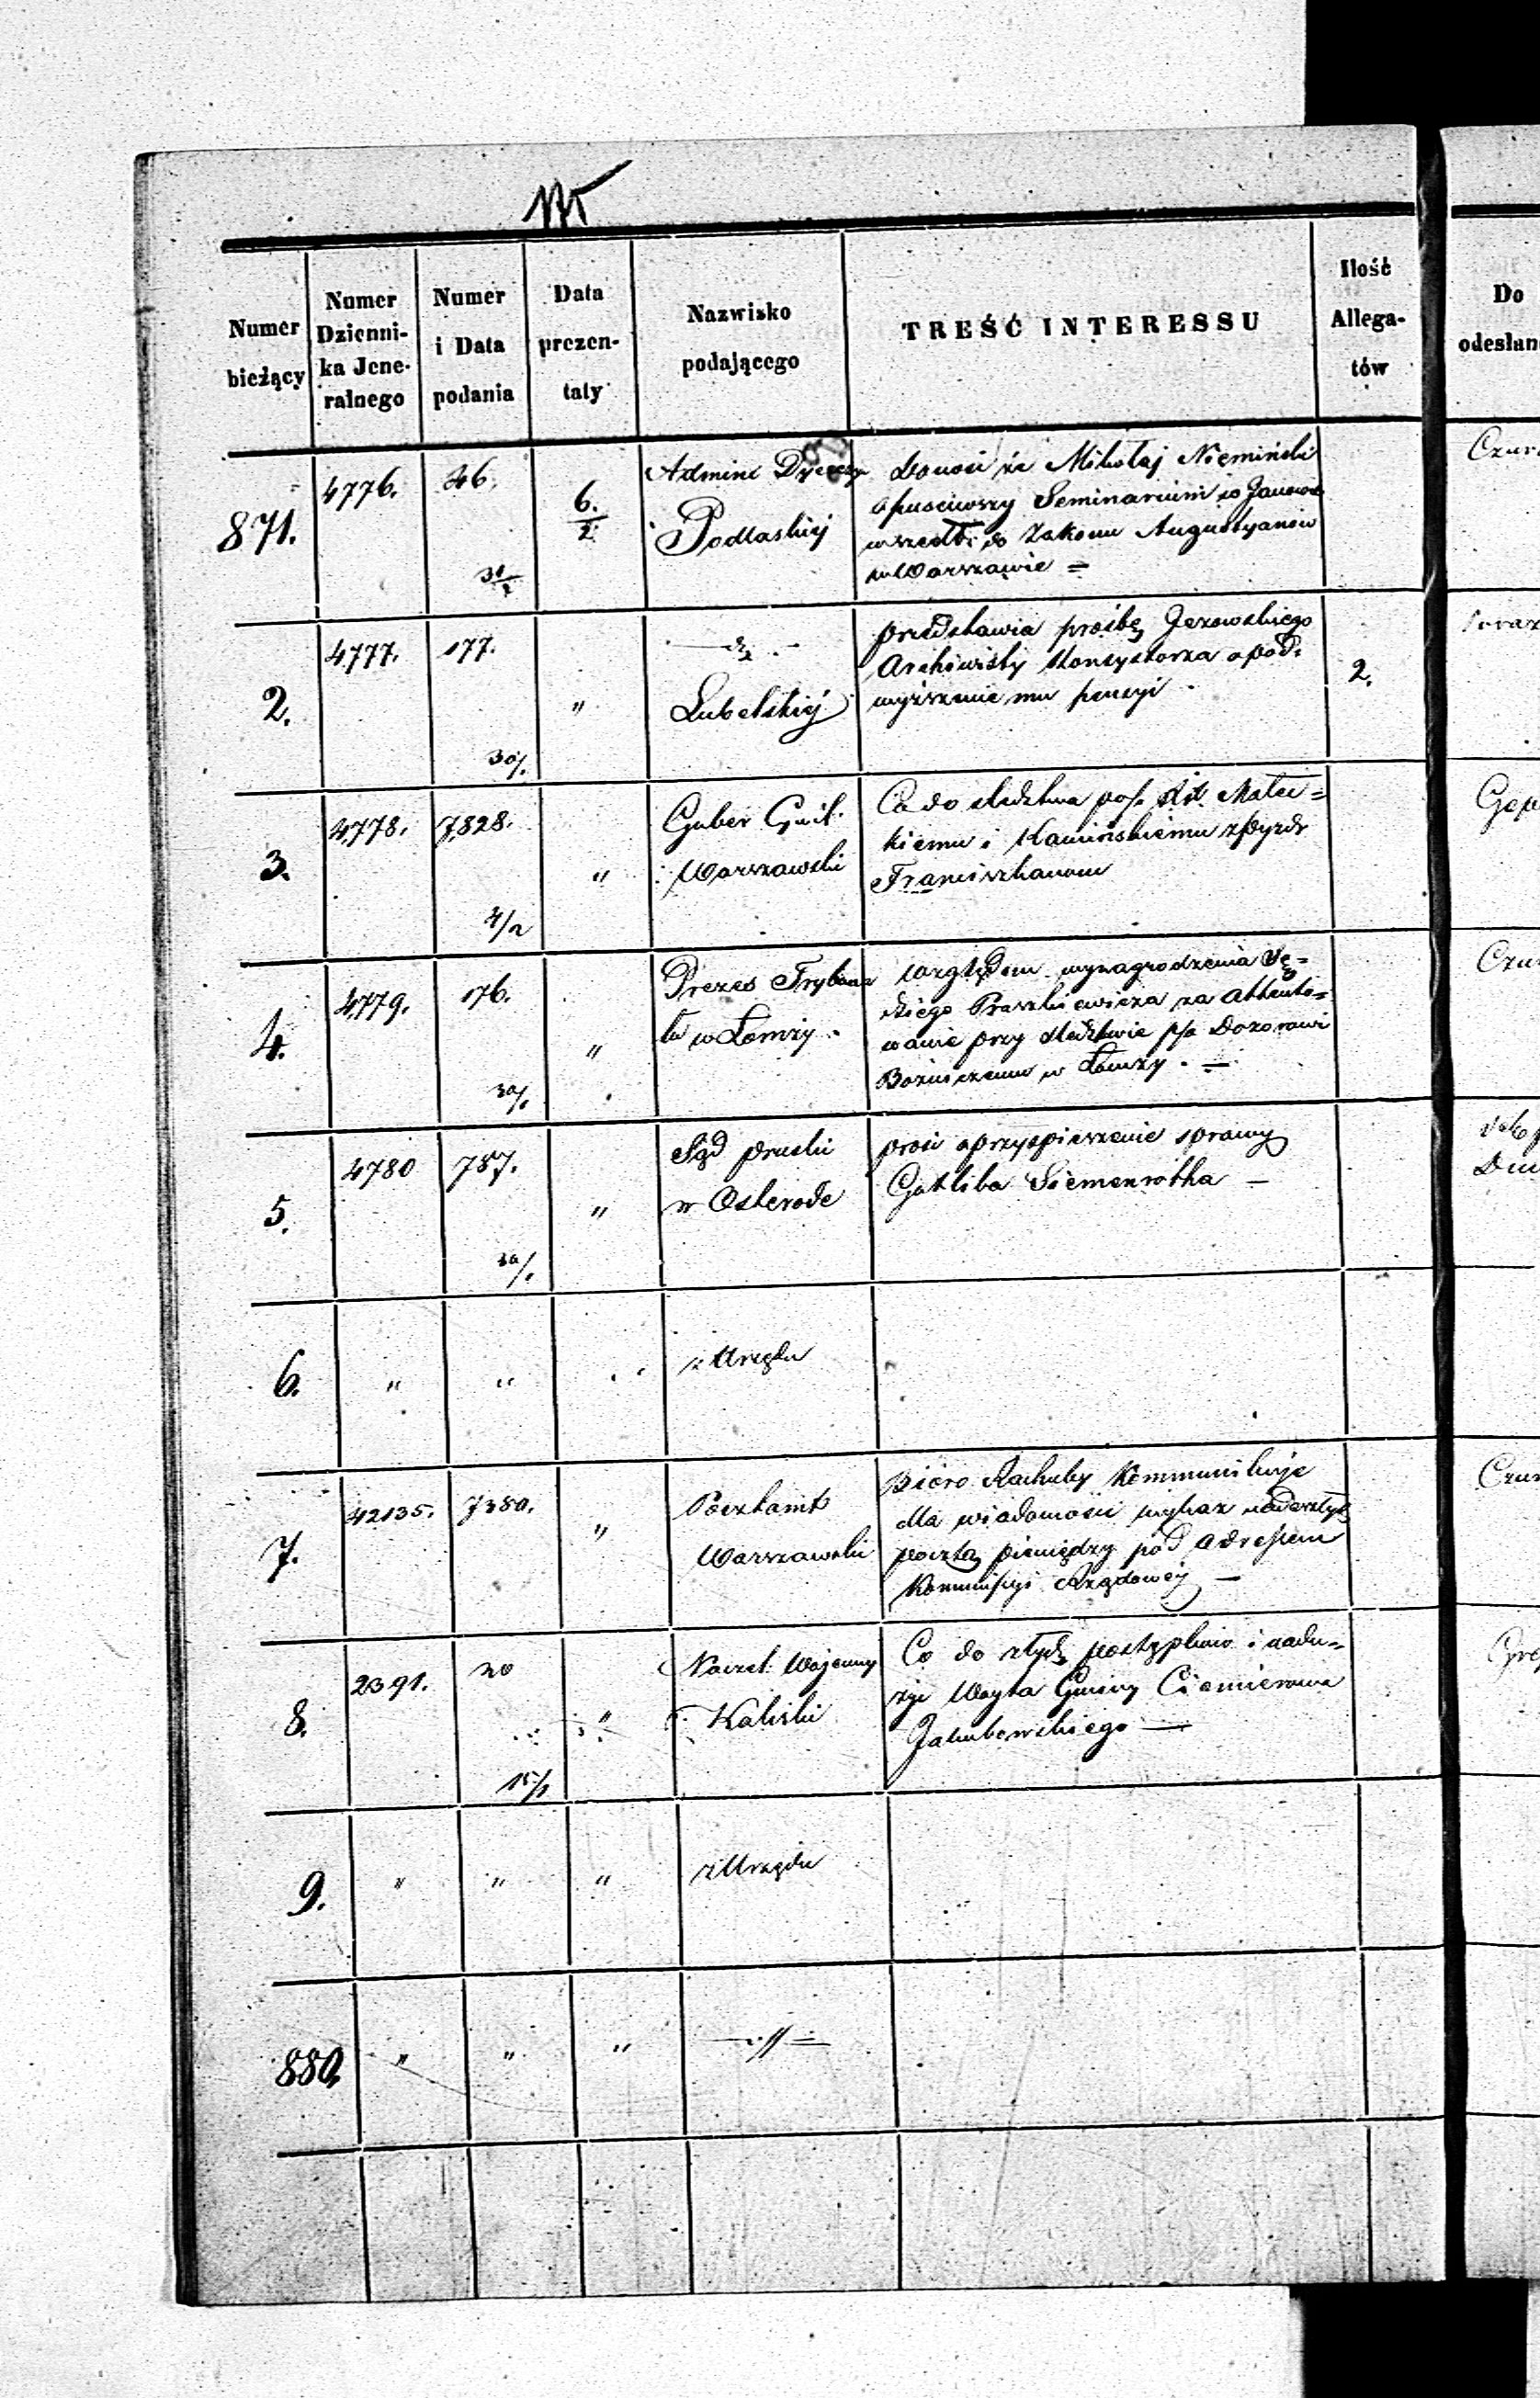 Numer bieżący
Numer Dzienni-ka Jene-ralnego
Numer i Data podania
Data prezen-taty
Nazwisko podającego
TREŚĆ INTERESSU
Ilość Allega-tów
Do odesłan
871.
4776.
46.
31/2
6./2
Admini Dyecezy
Podlaskiej
Donosi że Mikołaj Niemiński
opuściwszy Seminarium w Janowie
wszedł do Zakonu Augustyanów
w Warszawie =
2.
4777.
177.
30/1
"
Lubelskiej
przedstawia prośbę Jezowskiego
Archiwisty Konsystorza o pod-
wyższenie mu pensyi
2.
3.
4778.
7828.
4/2
"
Guber Cywil.
Warszawski
Co do śledztwa
kiemu i Kamińskiemu
Franciszkanom
4.
4779.
176.
30/1
"
Prezes Trybuna
łu w Łomży.
względem wynagrodzenia Sę-
dziego za attento-
wanie przy śledztwie p/o Dozorowi
Bożniczemu w Łomży. —
5.
4780
787.
30/1
"
Sąd pruski
w Osterode
prosi o przyspieszenie sprawy
Gotliba Siemenrotha —
6.
"
"
z Urzędu
7.
42135.
7380.
"
Pocztamt
Warszawski
Bióro Rachuby Kommunikuje
dla wiadomości wykaz nadeszłych
pocztą pieniędzy pod adressem
Kommissyi Rządowej —
8.
2391.
20
15/1
"
Naczel. Wojenny
Kaliski
Co do złych postępków i nadu-
żyć Woyta Gminy Ciemierowa
Jakubowskiego —
9.
"
"
"
z Urzędu
880.
"
"
"
—"—